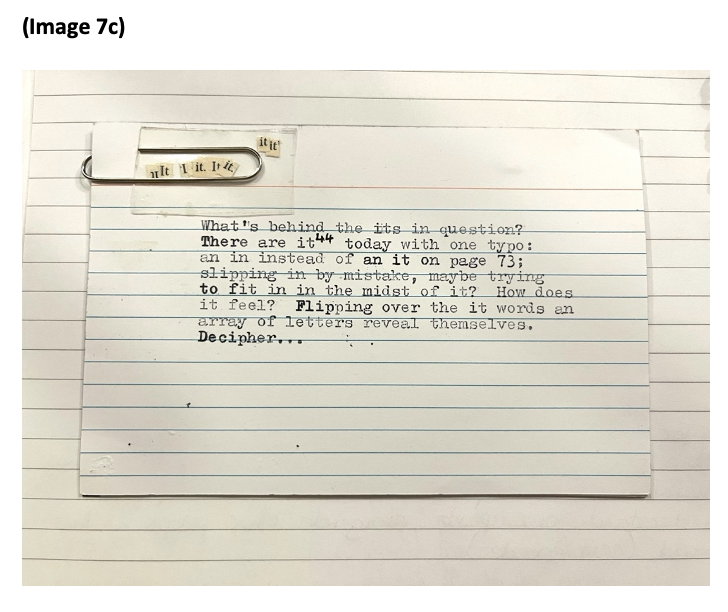 (Image 7c)
it it
It I it. It it
What"s behind the its in question?
There are it44 today with one typo:
an in instead of an it on page 73;
slipping in by mistake, maybe trying
to fit in in the midst of it? How does
it feel? Flipping over the it words an
array of letters reveal themselves.
Decipher...